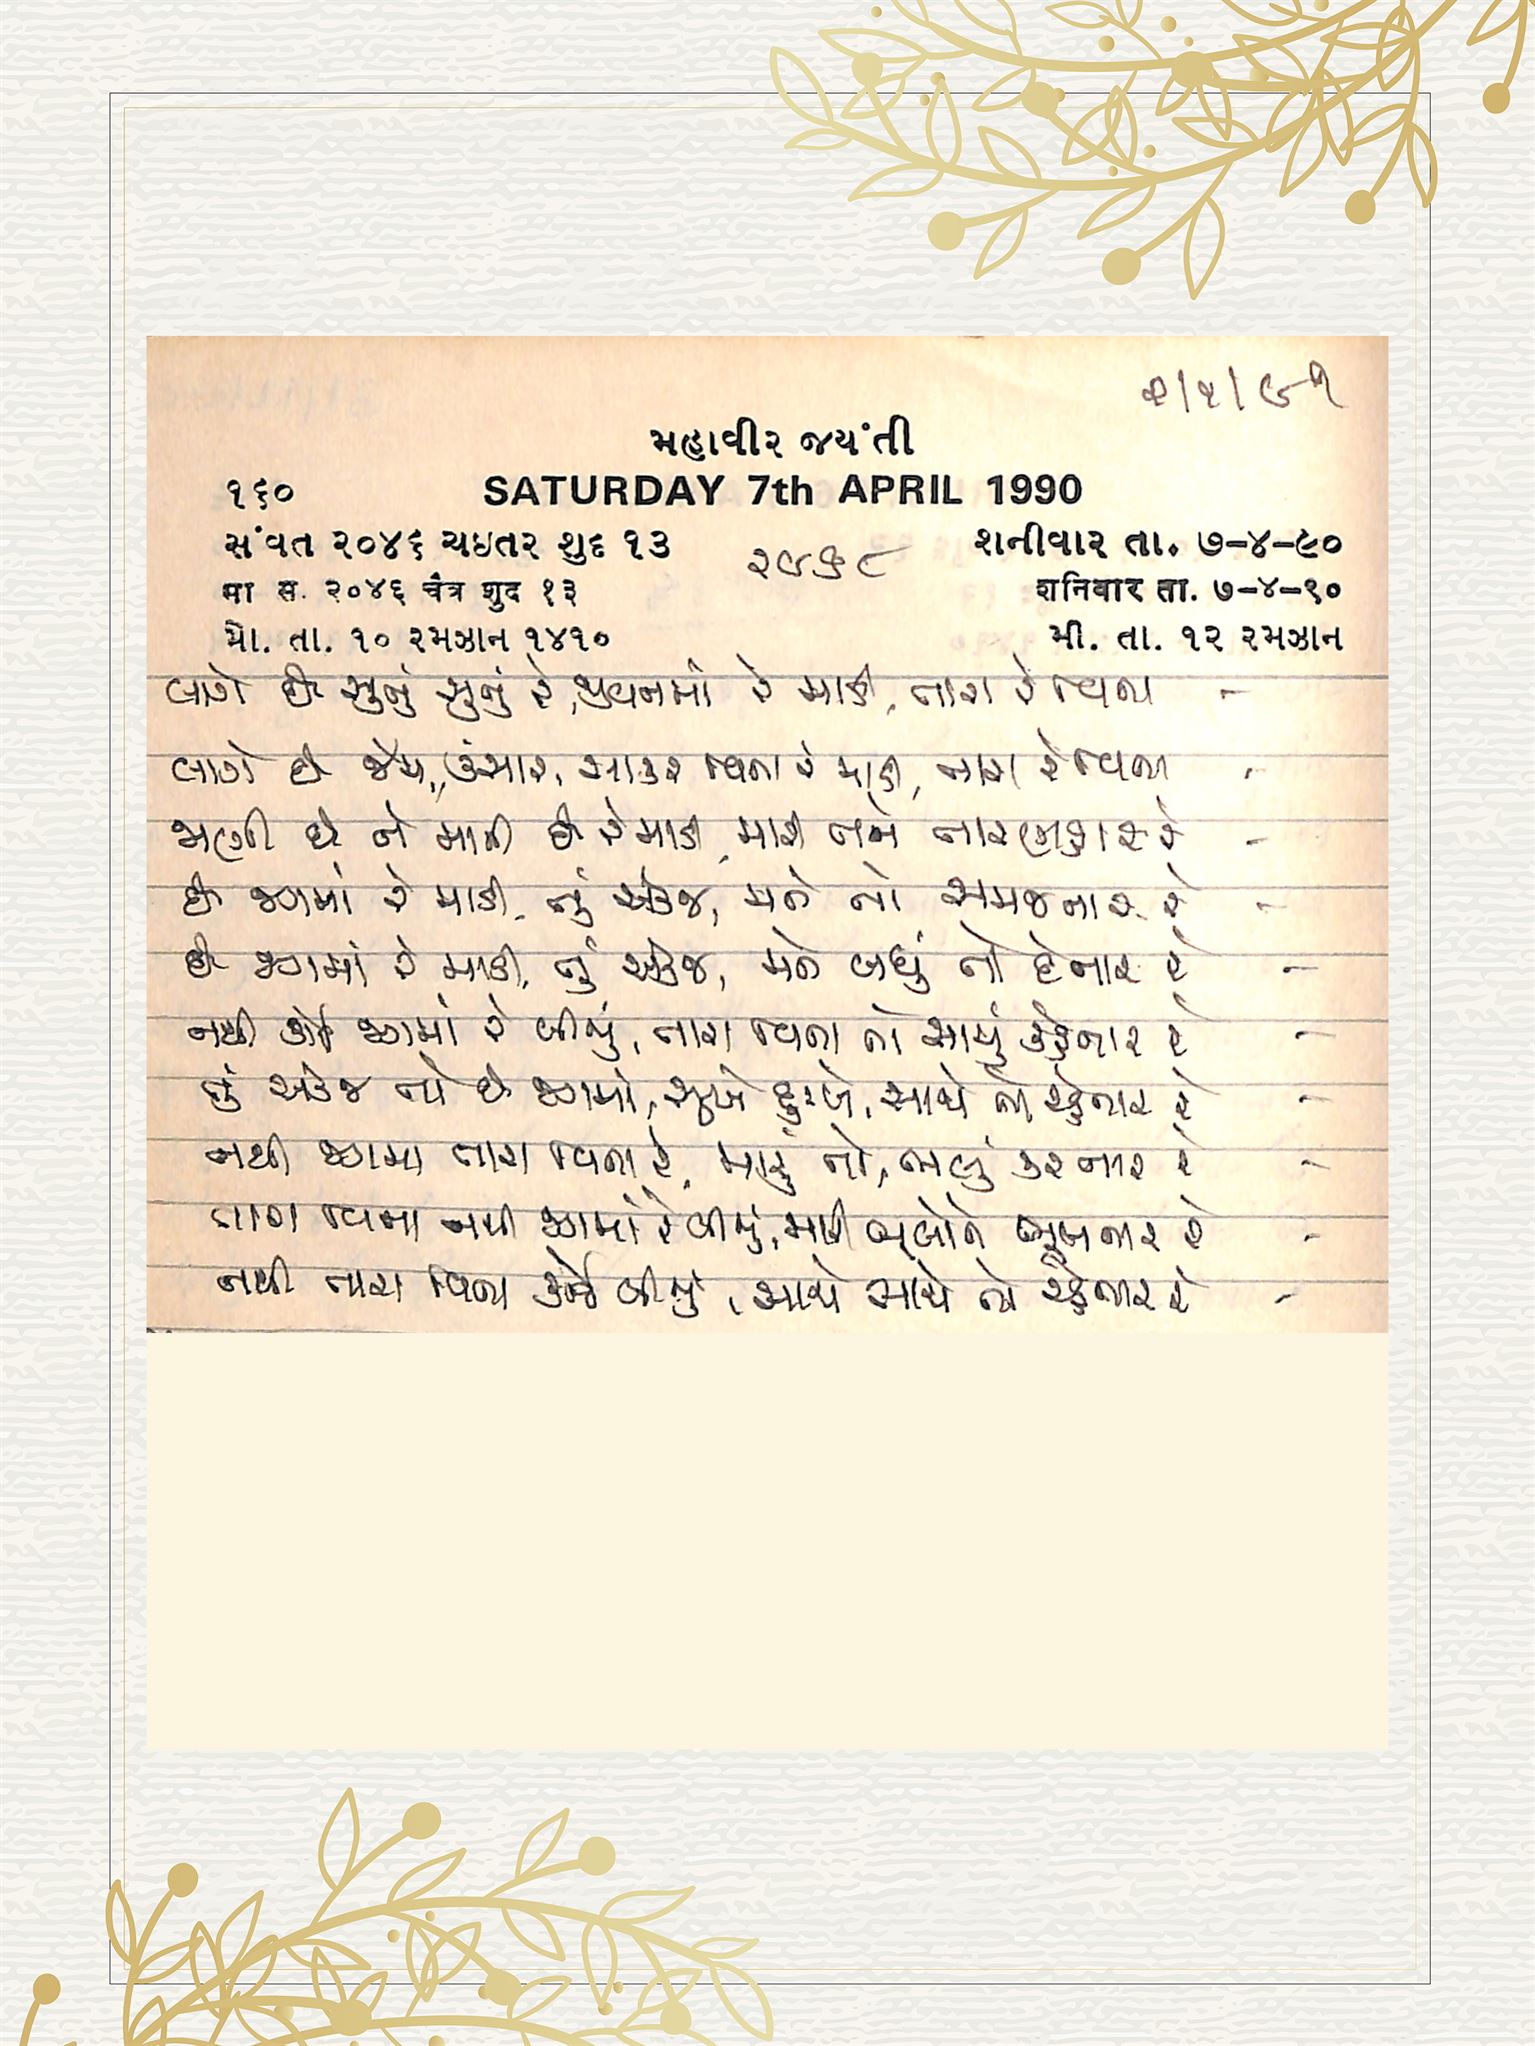 ૨/૧/૯૧
મહાવીર જયંતી
૧૬૦ SATURDAY 7th APRIL 1990
સંવત ૨૦૪૬ ચઇતર શુદ ૧૩ શનીવાર તા. ૭-૪-૯૦
मा स. २०४६ चैत्र शुद १३ शनिवार ता. ७-४-९०
પા. તા. ૧૦ રમઝાન ૧૪૧૦ મી. તા. ૧૨ રમઝાન
લાગે છે સુનું સુનું રે, જીવનમાં રે માડી, તારા રે વિના -
લાગે છે જેમ, કંસાર, સાકર વિના રે માડી, તારા રે વિના -
ભળી છે ને મળી છે રે માડી, મારી તને રે -
છે જગમાં રે માડી, તું એકજ, મને તો સમજનાર રે -
છે જગમાં રે માડી, તું એકજ, મને બધું તો દેનાર રે -
નથી કોઈ જગમાં રે બીજું, તારા વિના તો સાચું કહેનાર રે -
તું એકજ તો છે જગમાં, સુખે દુઃખે, સાથે તો રહેનાર રે -
નથી જગમાં તારા વિના રે, મારું તો, ભલું કરનાર રે -
તારા વિના નથી જગમાં રે બીજું, મારી ભૂલોને ભૂલનાર રે -
નથી તારા વિના કોઈ બીજું, સાથે સાથે તો રહેનાર રે -